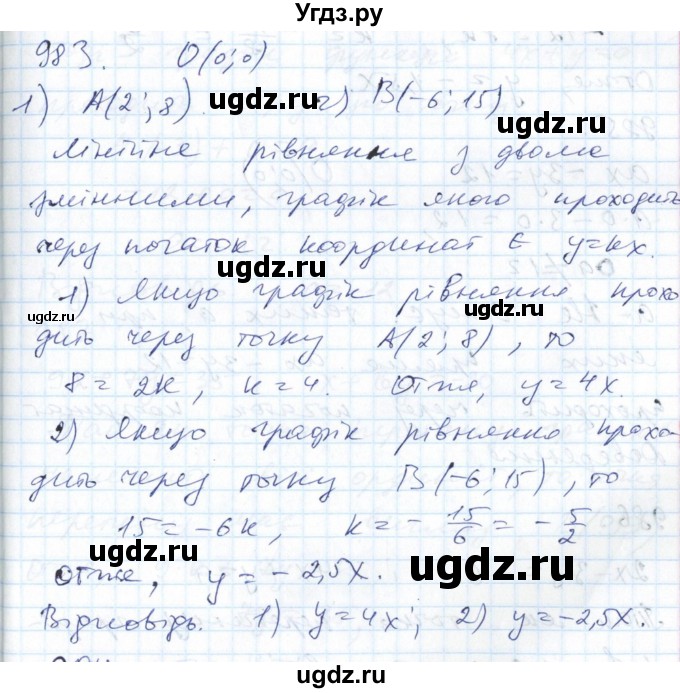 Угдз.ру
983. O(0;0)
1) A(2;8) 2) B(-6;15)
ugdz.ru ugdz.ru
Лінійне рівняння з двома
змінними, графік якого проходить
через початок координат є y=kx.
ugdz.ru
1) Якщо графік рівняння прохо-
ugdz.ru ugdz.ru
дить через точку A(2;8), то
8 = 2k, k=4. Отже, y=4x.
2) Якщо графік рівняння прохо-
ugdz.ru ugdz.ru
дить через точку B(-6;15), то
15 = -6k, k = -15/6 = -5/2
Отже, y = -2,5x.
ugdz.ru
Відповідь. 1) y=4x; 2) y=-2,5x.
ugdz.ru ugdz.ru